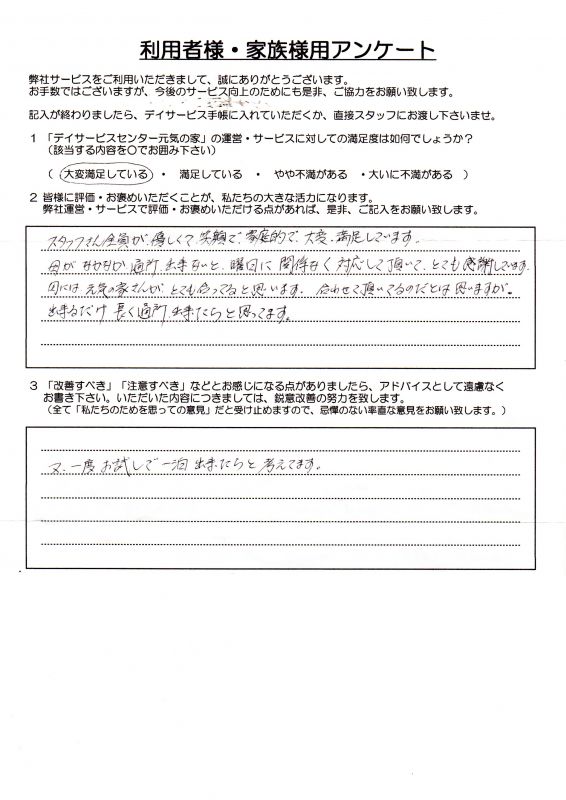 利用者様・家族様用アンケート
弊社サービスをご利用いただきまして、誠にありがとうございます。
お手数ではございますが、今後のサービス向上のためにも是非、ご協力をお願い致します。
記入が終わりましたら、デイサービス手帳に入れていただくか、直接スタッフにお渡し下さいませ。
1 「デイサービスセンター元気の家」の運営・サービスに対しての満足度は如何でしょうか?
(該当する内容を○でお囲み下さい)
( 大変満足している ・ 満足している ・ やや不満がある ・大いに不満がある )
2 皆様に評価・お褒めいただくことが、私たちの大きな活力になります。
弊社運営・サービスで評価・お褒めいただける点があれば、是非、ご記入をお願い致します。
スタッフさん全員が優しくて笑顔で家庭的で、大変、満足しています。
母がなかなか通所出来ないと、曜日に関係なく対応して頂いて、とても感謝しています。
母には元気の家さんが、とても合ってると思います。合わせて頂いてるのだとは思いますが。
出来るだけ長く通所出来たらと思ってます。
3 「改善すべき」「注意すべき」などとお感じになる点がありましたら、アドバイスとして遠慮なく
お書き下さい。いただいた内容につきましては、鋭意改善の努力を致します。
(全て「私たちのためを思っての意見」だと受け止めますので、忌憚のない率直な意見をお願い致します。)
又、一度お試しで一泊出来たらと考えてます。